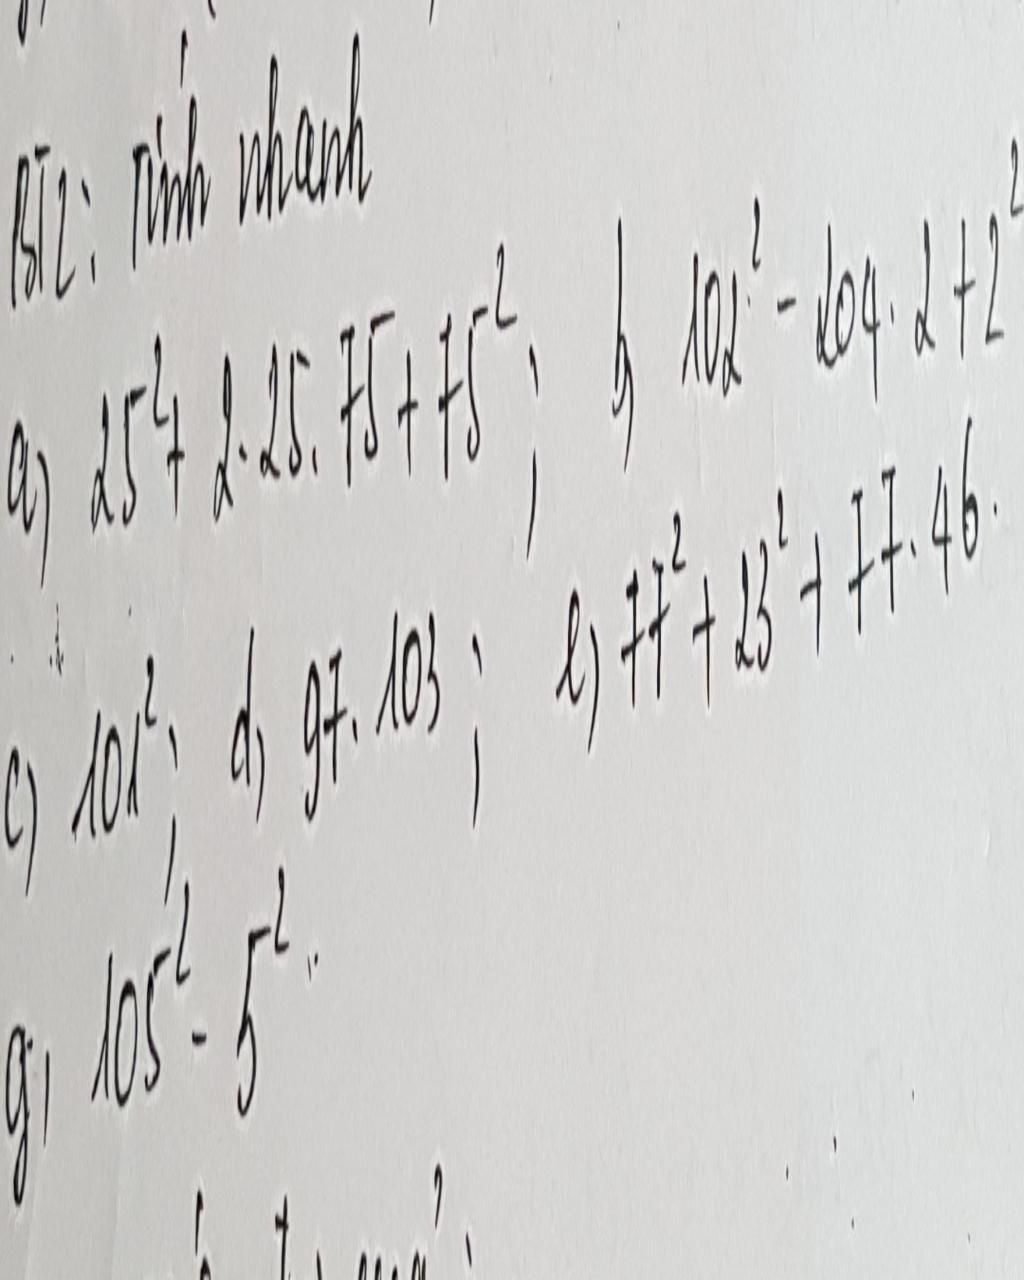 BT2: Tính nhanh
a) 25² + 2.25.75 + 75²; b) 102² - 204.2 + 2²
c) 101²; d) 97.103; e) 77² + 23² + 77.46.
g) 105² - 5².